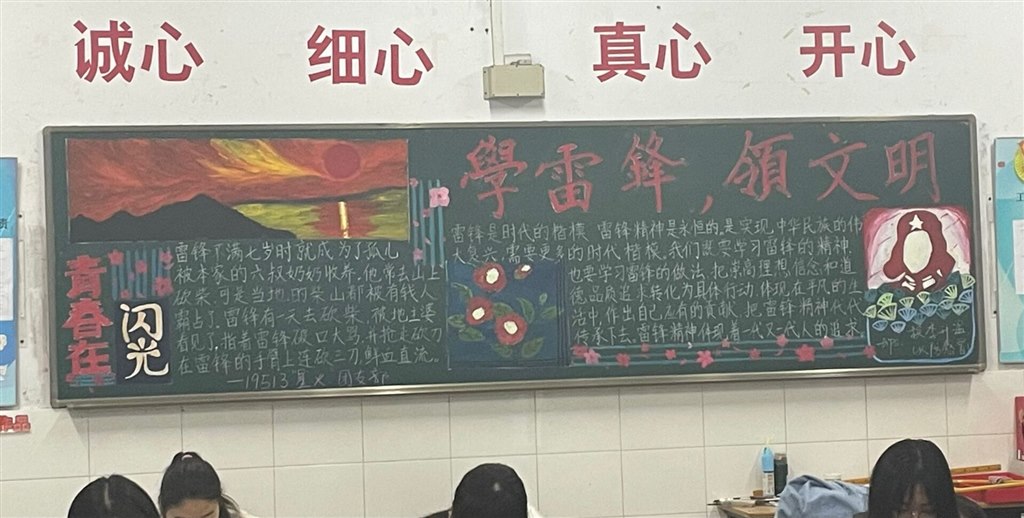 诚心 细心 真心 开心
學雷鋒，領文明
青春在
闪光
雷锋不满七岁时就成为了孤儿
被本家的六叔奶奶收养。他常去山上
砍柴，可是当地的柴山都被有钱人
霸占了。雷锋有一天去砍柴，被地主婆
看见了，指着雷锋破口大骂，并抢走砍刀
在雷锋的手背上连砍三刀鲜血直流。
—19513
雷锋是时代的楷模，雷锋精神是永恒的，是实现中华民族的伟
大复兴，需要更多的时代楷模。我们既要学习雷锋的精神，
也要学习雷锋的做法，把崇高理想信念和道
德品质追求转化为具体行动，体现在平凡的生
活中，作出自己应有的贡献，把雷锋精神代代
传承下去。雷锋精神体现着一代又一代人的追求
作品